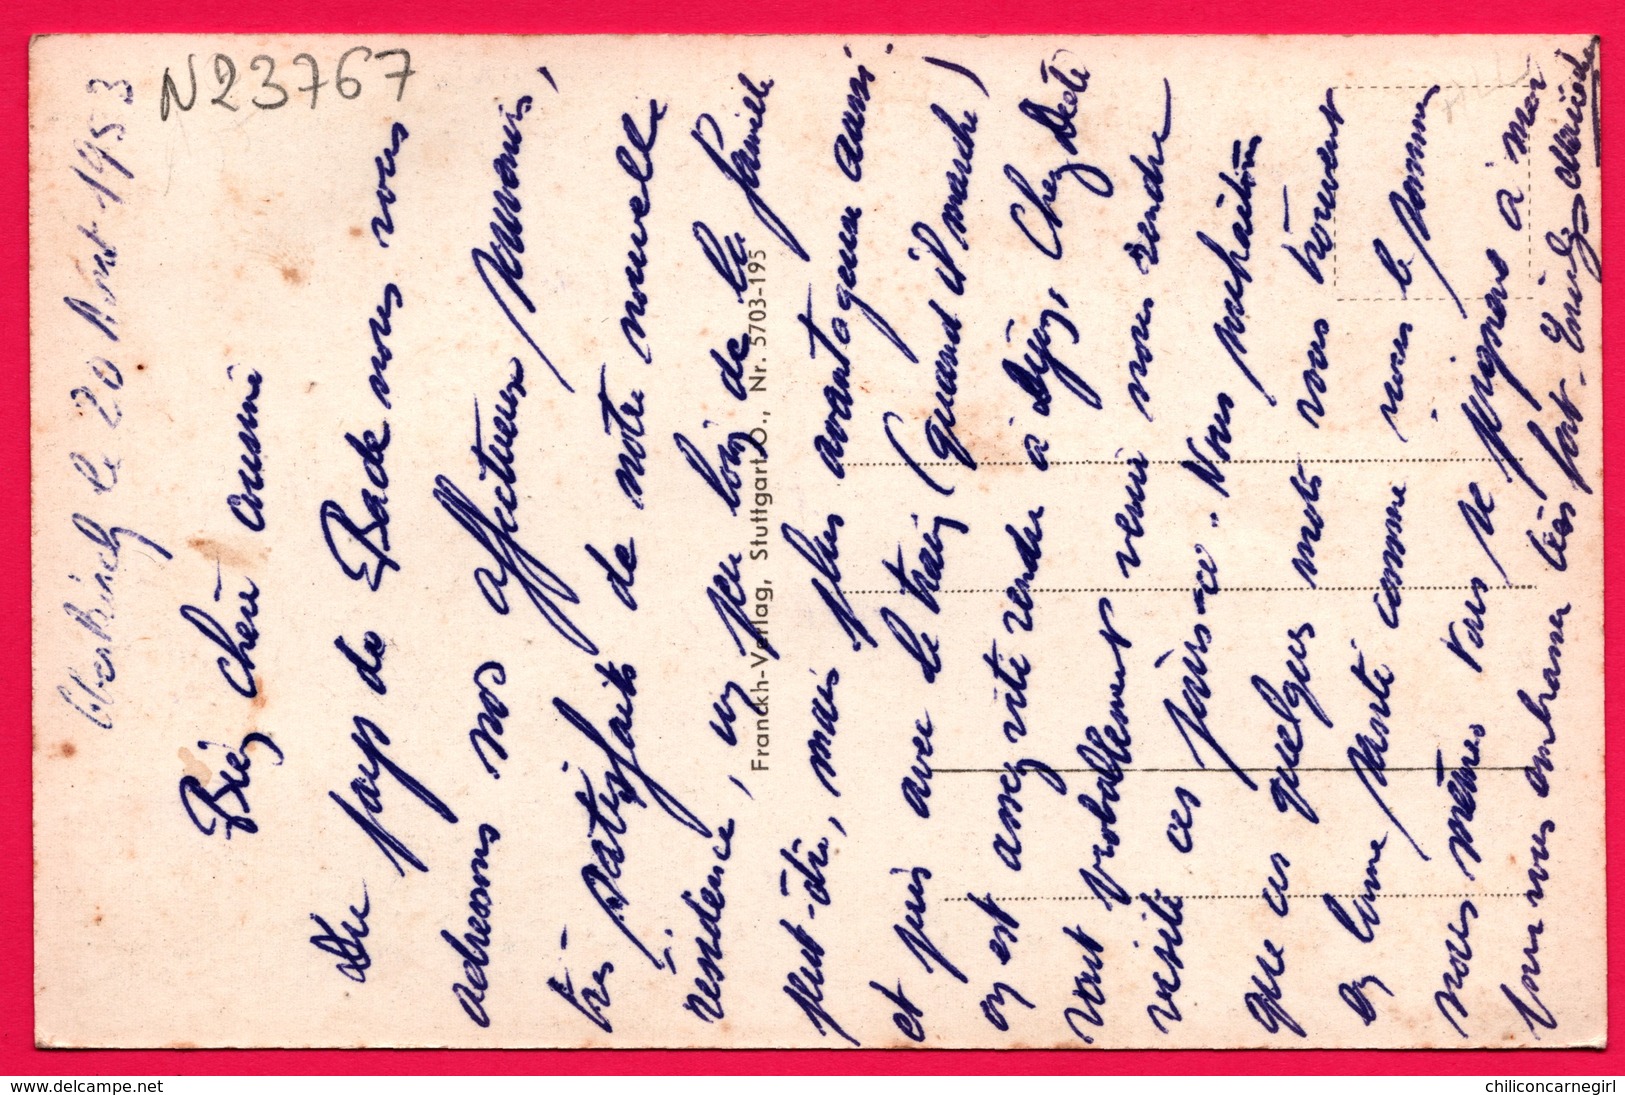 N23767
le 20 Aout 1953
Bien chère cousine
Du pays de Bade nous vous
adressons nos affectueux souvenirs,
très satisfaits de notre nouvelle
résidence, un peu loin de la famille
peut-être, mais plus avantageux aussi
et puis avec le train (quand il marche)
on est assez vite rendu à Dijon, Chez
vont probablement venir nous rendre
visite ces jours-ce. Nous souhaitons
que ces quelques mots vous trouvent
en bonne santé comme nous le sommes
nous mêmes se joignent à moi
pour vous embrasser très fort.
Franckh-Verlag, Stuttgart O., Nr. 5703-195
www.delcampe.net
chiliconcarnegirl